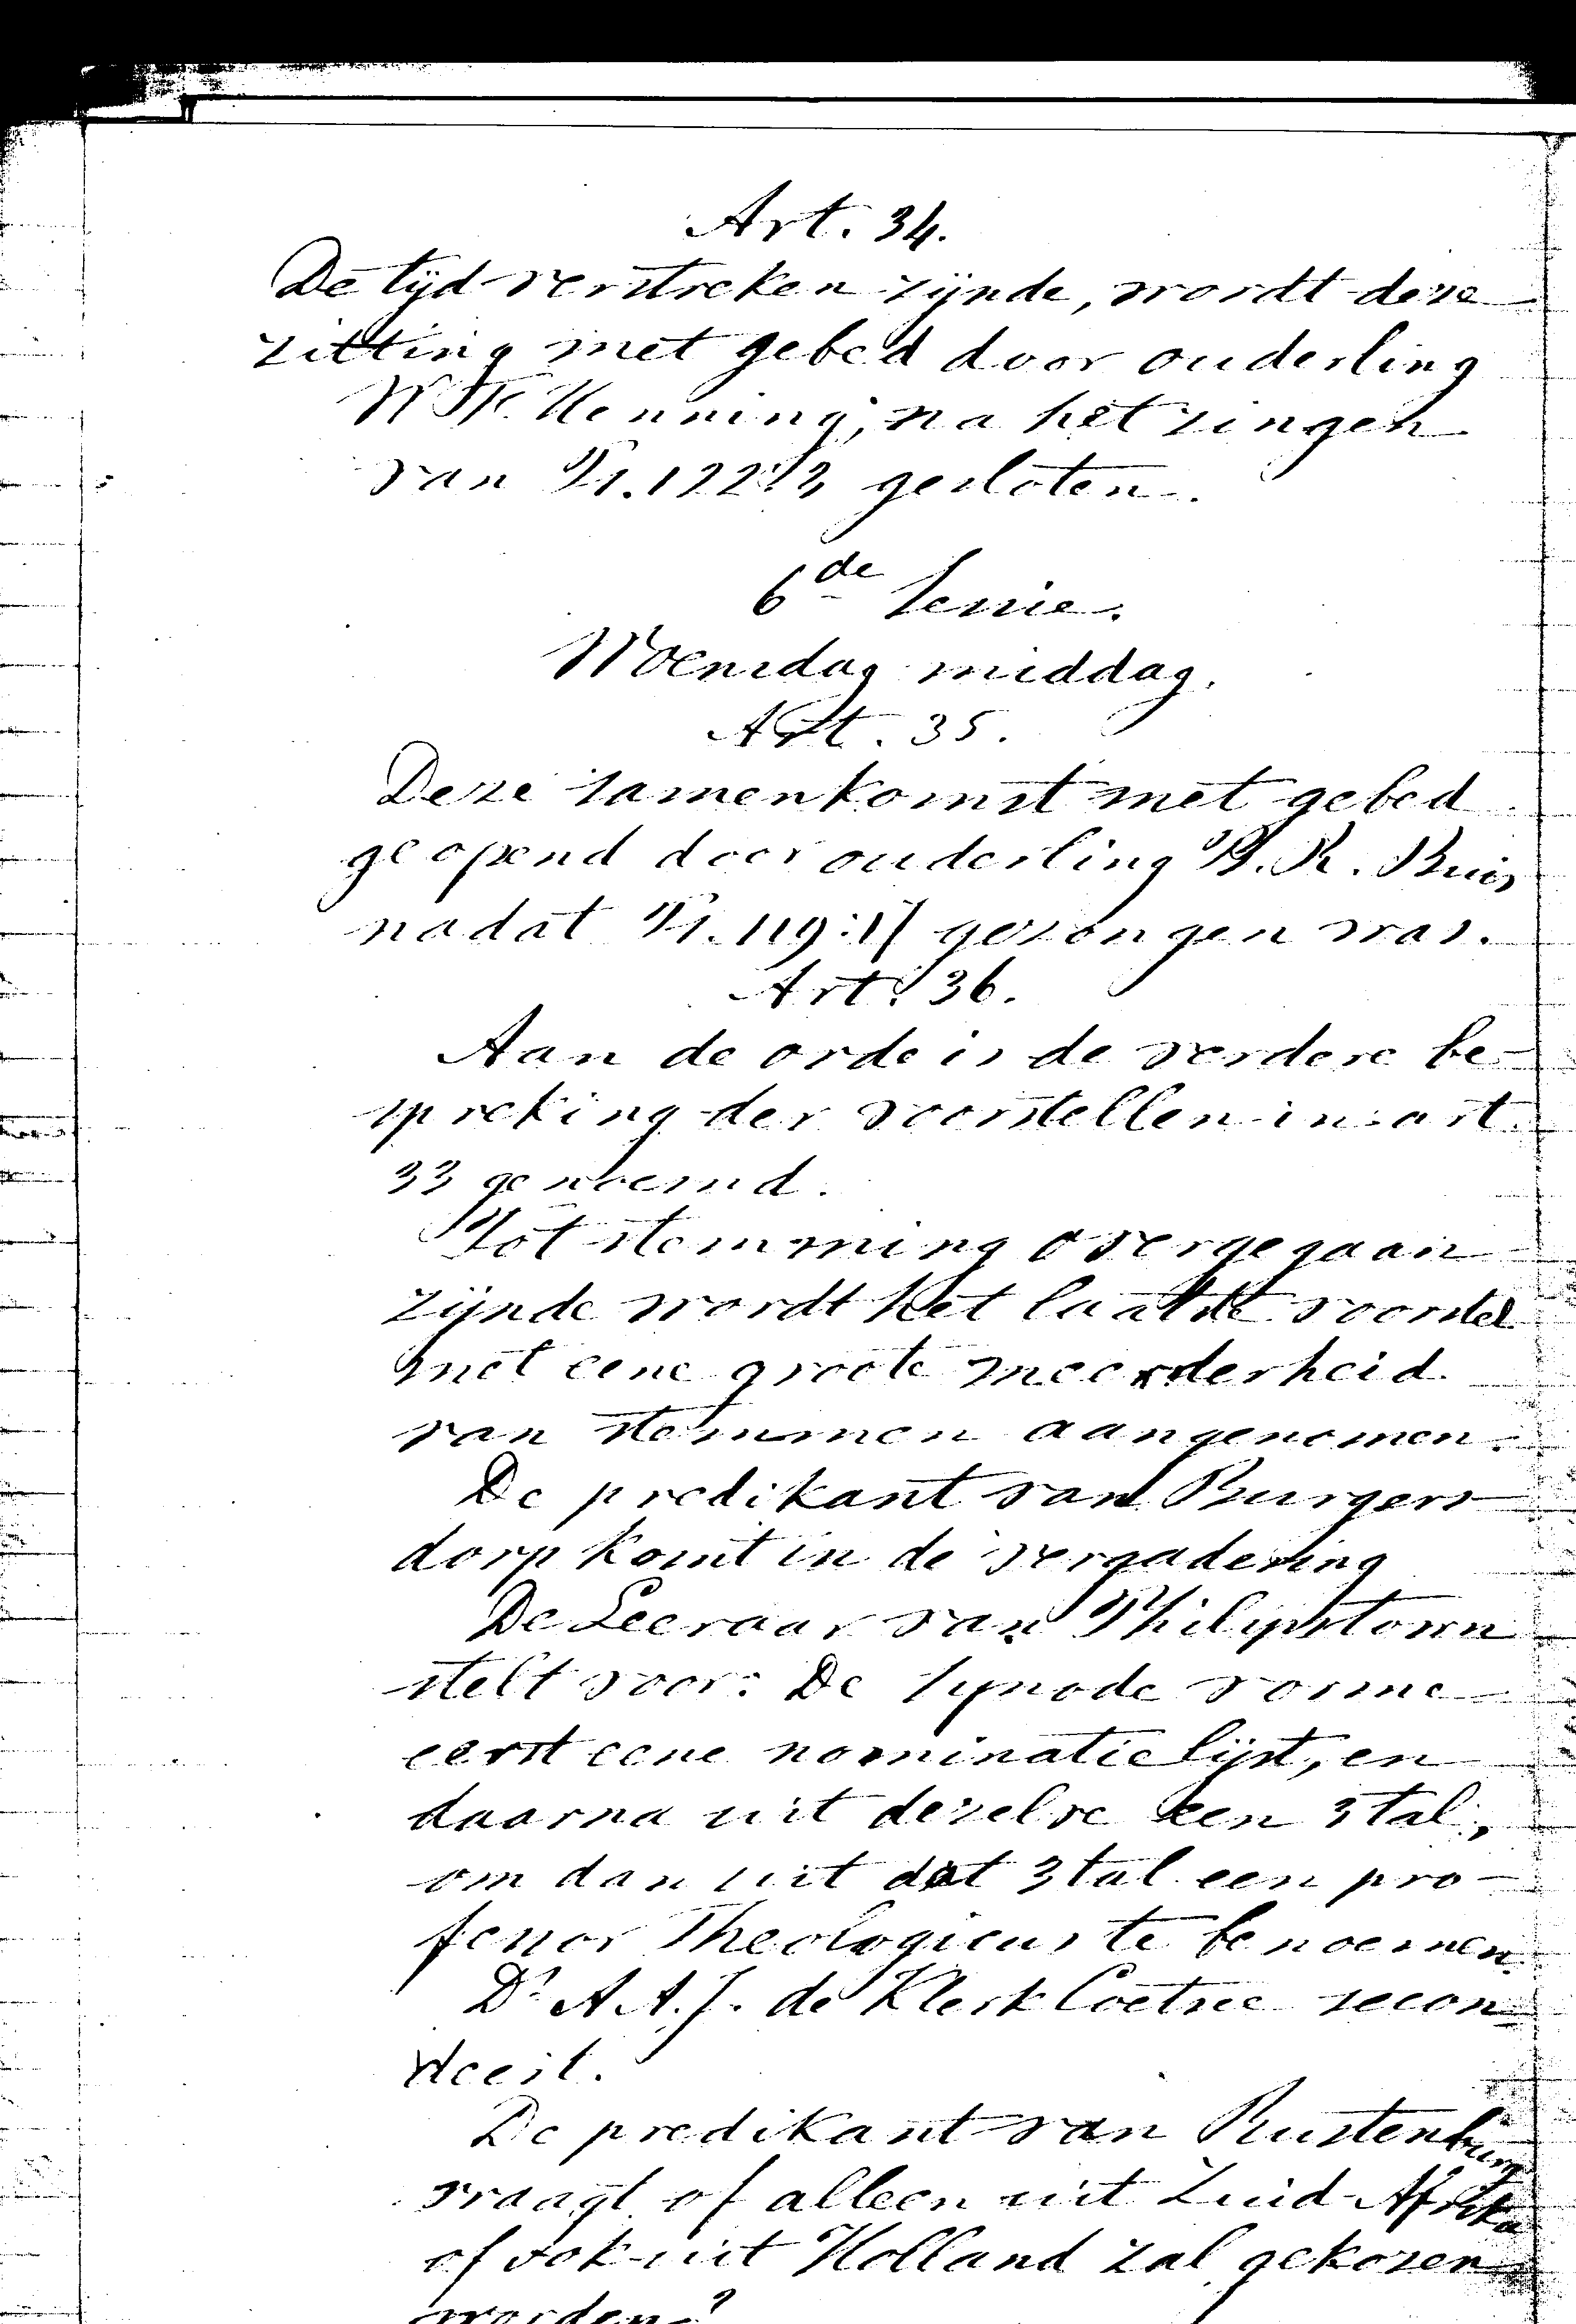 Art. 34.
De tijd verstreken zijnde, wordt deze
zitting met gebed door ouderling
Henning, na het zingen
van Ps. 122:3 gesloten.
6de Sessie.
Woensdag middag.
Art. 35.
Deze samenkomst met gebed
geopend door ouderling P. R. Buis
nadat Ps. 119: gezongen was.
Art. 36.
Aan de orde is de verdere be-
spreking der voorstellen in art.
33 genoemd.
Tot stemming overgegaan
zijnde wordt het laatste voorstel
met eene groote meerderheid
van stemmen aangenomen.
De predikant van Burgers
dorp komt in de vergadering
De Leeraar van Philipstown
stelt voor: De Synode vorme
eerst eene nominatie lijst, en
daarna uit dezelve een 3tal,
om dan uit dat 3tal een pro-
fessor Theologicus te benoemen.
Ds A. A. J. de Klerk Coetzee secon
deert.
De predikant van Rustenburg
vraagt of alleen uit Zuid-Afrika
of ook uit Holland zal gekozen
worden?